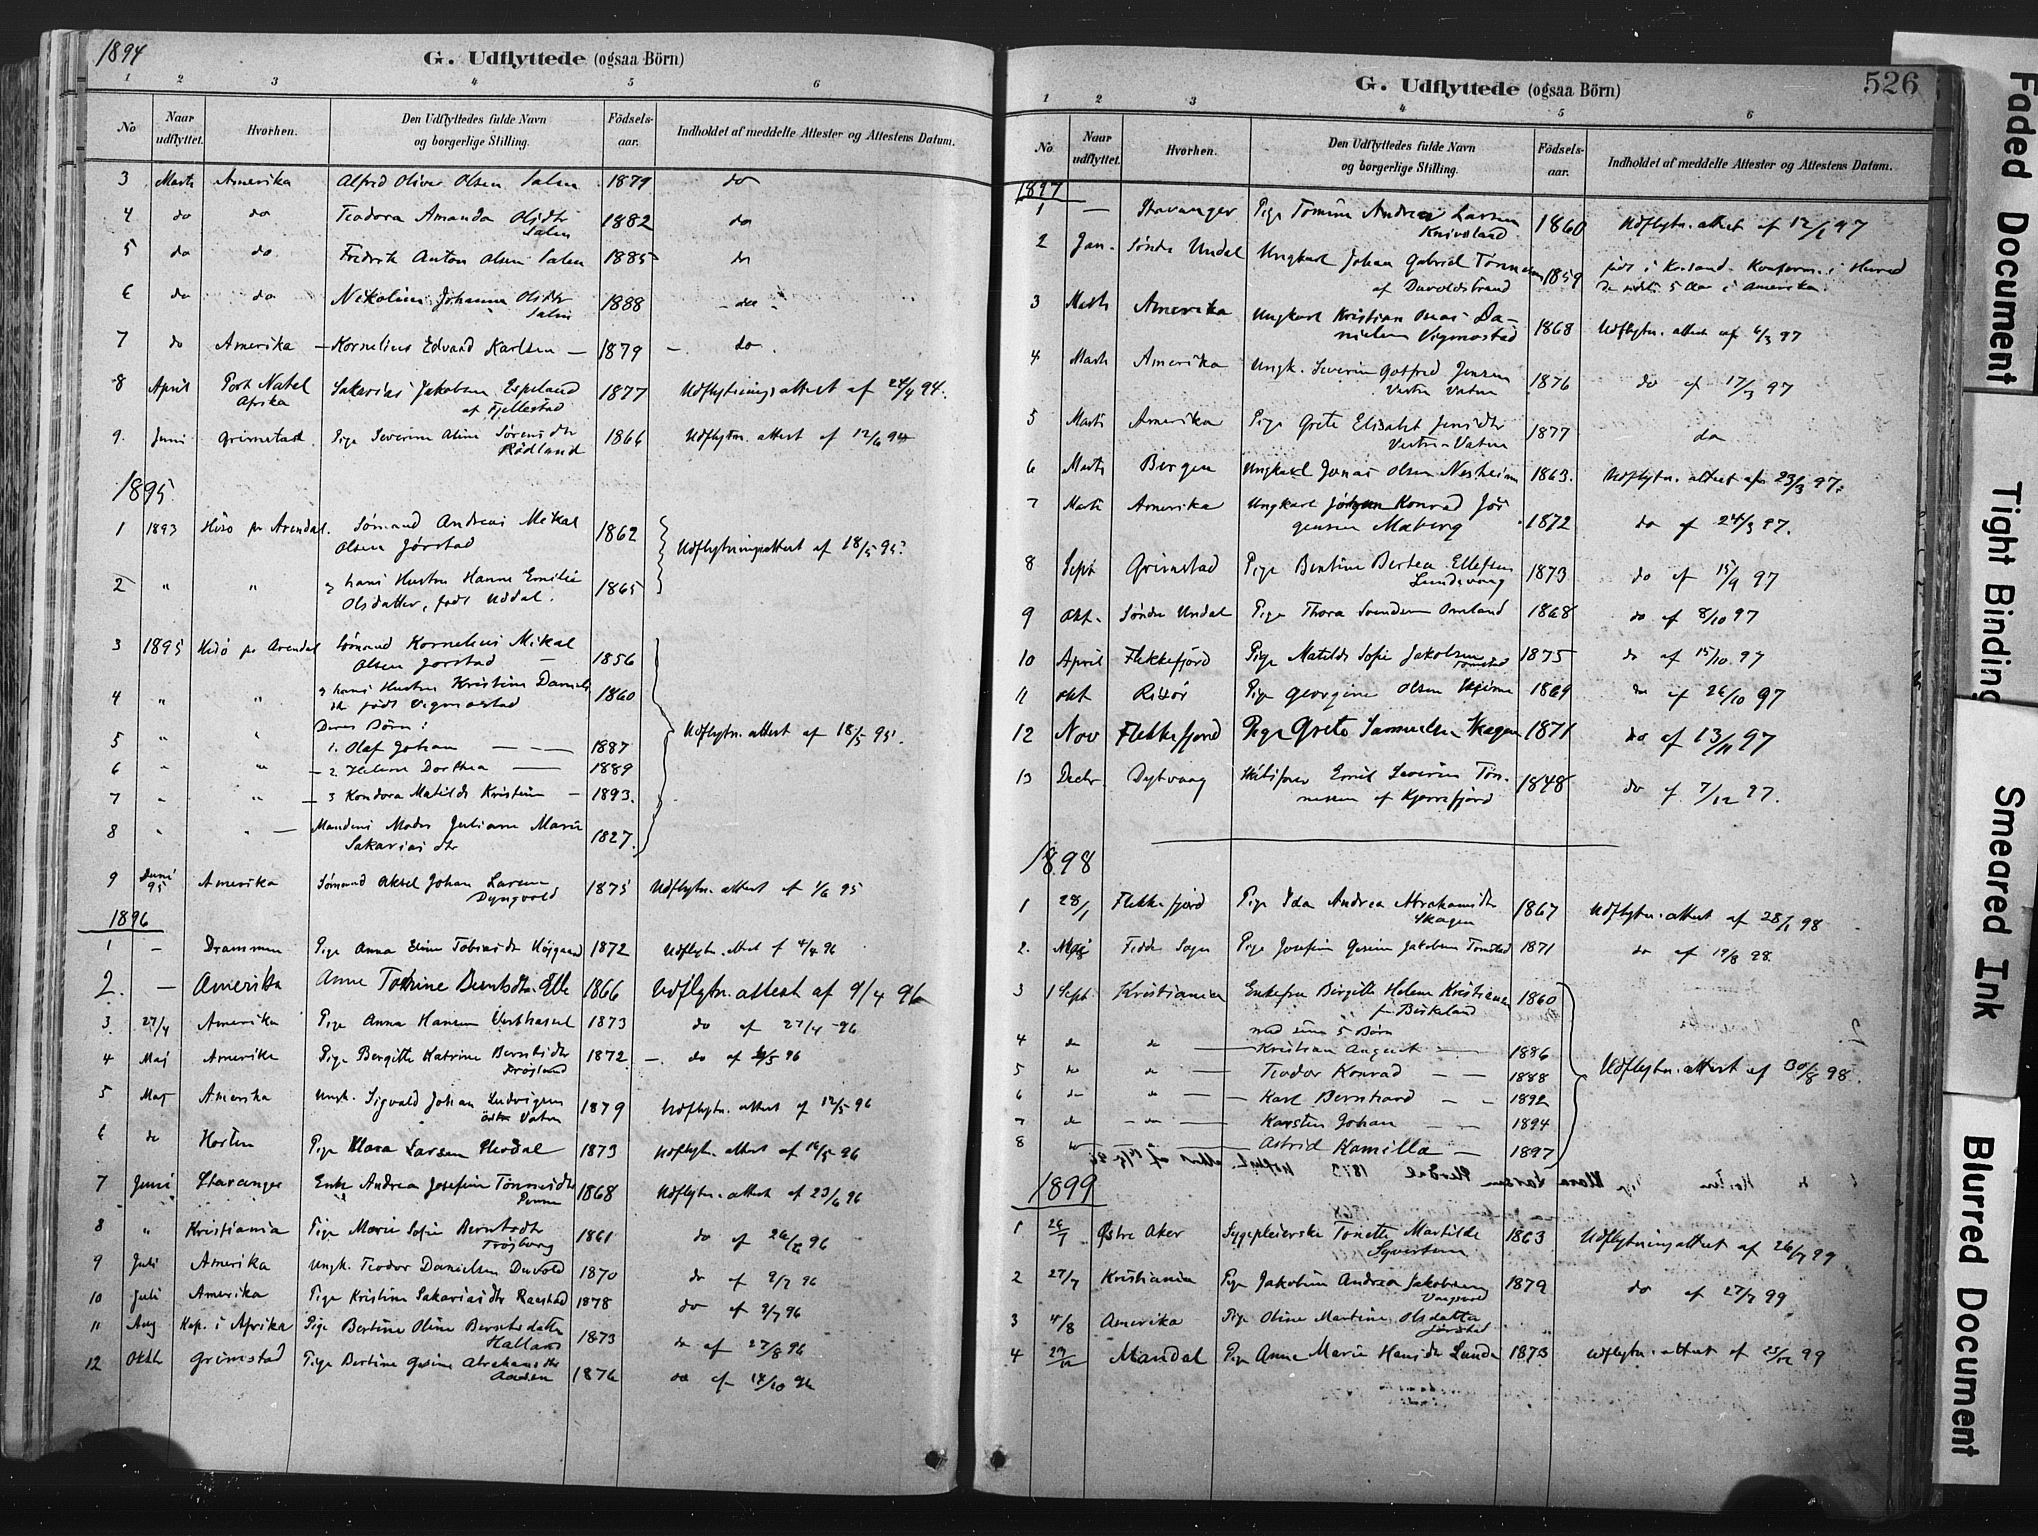 1894
G. Udflyttede (ogsaa Börn)
1 2 3 4 5 6
No Naar udflyttet. Hvorhen. Den Udflyttedes fulde Navn og borgerlige Stilling. Födsels-aar. Indholdet af meddelte Attester og Attestens Datum.
3 Marts Amerika Alfred Oliver Olsen Salen 1879 do
4 do do Teodora Amanda Olsdtr Salen 1882 do
5 do do Fredrik Anton Olsen Salen 1885 do
6 do do Nikoline Johanne Olsdtr Salen 1888 do
7 do Amerika Kornelius Edvard Karlsen 1879 do.
8 April Port Natal Afrika Sakarias Jakobsen Espeland af Fjellestad 1877 Udflytningsattest af 24/4 94.
9. Juni Grimstad. Pige Severine Aline Sørensdtr Rødland 1866 Udflytn. attest af 12/6 94
1895
1 1893 Hisø pr Arendal. Sømand Andreas Mikal Olsen Jørstad 1862 Udflytningsattest af 18/5 95.
2 " " hans Hustru Hanne Emilie Olsdatter, født Uddal. 1865
3 1895 Hisø pr Arendal Sømand Kornelius Mikal Olsen Jørstad 1856
4 " " hans Hustru Kristine Daniels dtr født Vigmostad 1860
Deres Børn:
5 " " 1. Olaf Johan 1887 Udflytn. attest af 18/5 95.
6 " " 2 Helene Dorthea 1889
7 " " 3 Kondora Matilde Kristine 1893.
8 " " Mandens Moder Juliane Marie Sakariasdtr 1827.
9 Juni 95 Amerika Sømand Aksel Johan Larsen Dyngvold 1875 Udflytn. attest af 1/6 95
1896
1 — Drammen Pige Anna Eline Tobiasdtr Højgaard 1872 Udflytn. attest f 4/4 96
2. — Amerika Anne Tomine Berntsdtr. Elle 1866 Udflytn. attest af 9/4 96
3. 27/4 Amerika Pige Anna Hansen 1873 do af 27/4 -96
4 Maj Amerika Pige Bergitte Katrine Berntsdtr 1872. do af /5 96
5 Maj Amerika Ungk. Sigvald Johan Ludvigsen Østre Vatne 1879 Udflytn. attest af 12/5 96
6 do Horten Pige Klara Larsen 1873 Udflytn. attest af 16/5 96
7 Juni Stavanger Enke Andrea Josefine Tønnesdtr 1868 Udflytn. attest af 23/6 96
8 " Kristiania Pige Marie Sofie Berntsdtr 1861 do af 26/6 96
9 Juli Amerika Ungk. Teodor Danielsen Duvold 1870 do af 9/7 96
10 Juli Amerika Pige Kristine Sakariasdtr Raastad 1878 do af 9/7 96
11 Aug Kap. i Afrika Pige Bertine Oline Berntsdatter Halland 1873 do af 27/8 96
12 Oktb Grimstad Pige Bertine Gesine Abrahamsdtr Aasen 1876 do af 14/10 96
G. Udflyttede (ogsaa Börn) 526
1 2 3 4 5 6
No Naar udflyttet. Hvorhen. Den Udflyttedes fulde Navn og borgerlige Stilling. Födsels-aar. Indholdet af meddelte Attester og Attestens Datum.
1897
1 — Stavanger Pige Tomine Andrea Larsen Knivsland 1860 Udflytn. attest af 12/1 97
2 Jan. Søndre Undal Ungkarl Johan Gabriel Tønnesen af Duvoldstrand 1859 født i Krsand. Konfirm. i Herred De sidste 5 Aar i Amerika.
3 Marts Amerika Ungkarl Kristian Onas Danielsen Vigmostad 1868 Udflytn. attest af 6/3 97
4 Marts Amerika Ungk. Severin Gotfred Jensen Vestre Vatne 1876 do af 17/3 97
5 Marts Amerika Pige Grete Elisabet Jensdtr Vestre Vatne 1877 do
6 Marts Bergen Ungkarl Jonas Olsen Nesheim 1863. Udflytn. attest af 23/3 97.
7 Marts Amerika Ungkarl Konrad Jørgensen Moberg 1872 do af 24/3 97.
8 Sept Grimstad Pige Bentine Bertea Ellefsen Lundevaag 1873 do af 15/9 97
9 Okt. Søndre Undal Pige Thora Svendsen Omland 1868 do af 8/10 97
10 April Flekkefjord Pige Matilde Sofie Jakobsen Tomstad 1875 do af 15/10 97
11 Okt Risør Pige Georgine Olsen 1869 do af 26/10 97
12 Nov Flekkefjord Pige Grete Samuelsen Skagen 1871 do af 13/11 97
13 Decbr. Dybvaag Emil Severin Tønnessen af Kjørrefjord 1848 do af 7/12 97.
1898
1 28/1 Flekkefjord Pige Ida Andrea Abrahamsdtr Skagen 1867 Udflytn. attest af 28/1 98
2. Maj Fedde Sogn Pige Josefine Gesine Jakobsen Tomstad 1871 do af 19/8 98.
3 1 Sept. Kristiania Enkefru Birgitte Helene Kristiansen f. Birkeland 1860
med sine 5 Børn
4 do do Kristian August 1886
5 do do Teodor Konrad 1888 Udflytn. attest af 30/8 98.
6 do " Karl Bernhard 1892
7 do do Karsten Johan 1894
8 " " Astrid Kamilla 1897
1899
1 26/7 Østre Aker Sygepleierske Tonette Martilde Syvertsen 1863 Udflytningsattest af 26/7 99
2 27/7 Kristiania Pige Jakobine Andrea Jakobsen 1879 do af 27/7 99
3 4/8 Amerika Pige Oline Martine Olsdatter Jørstad
4 29/12 Mandal Pige Anne Marie Hansdtr Lunde 1873 Udflytn. attest af 25/12 99
Faded Document
Tight Binding
Smeared Ink
Blurred Document